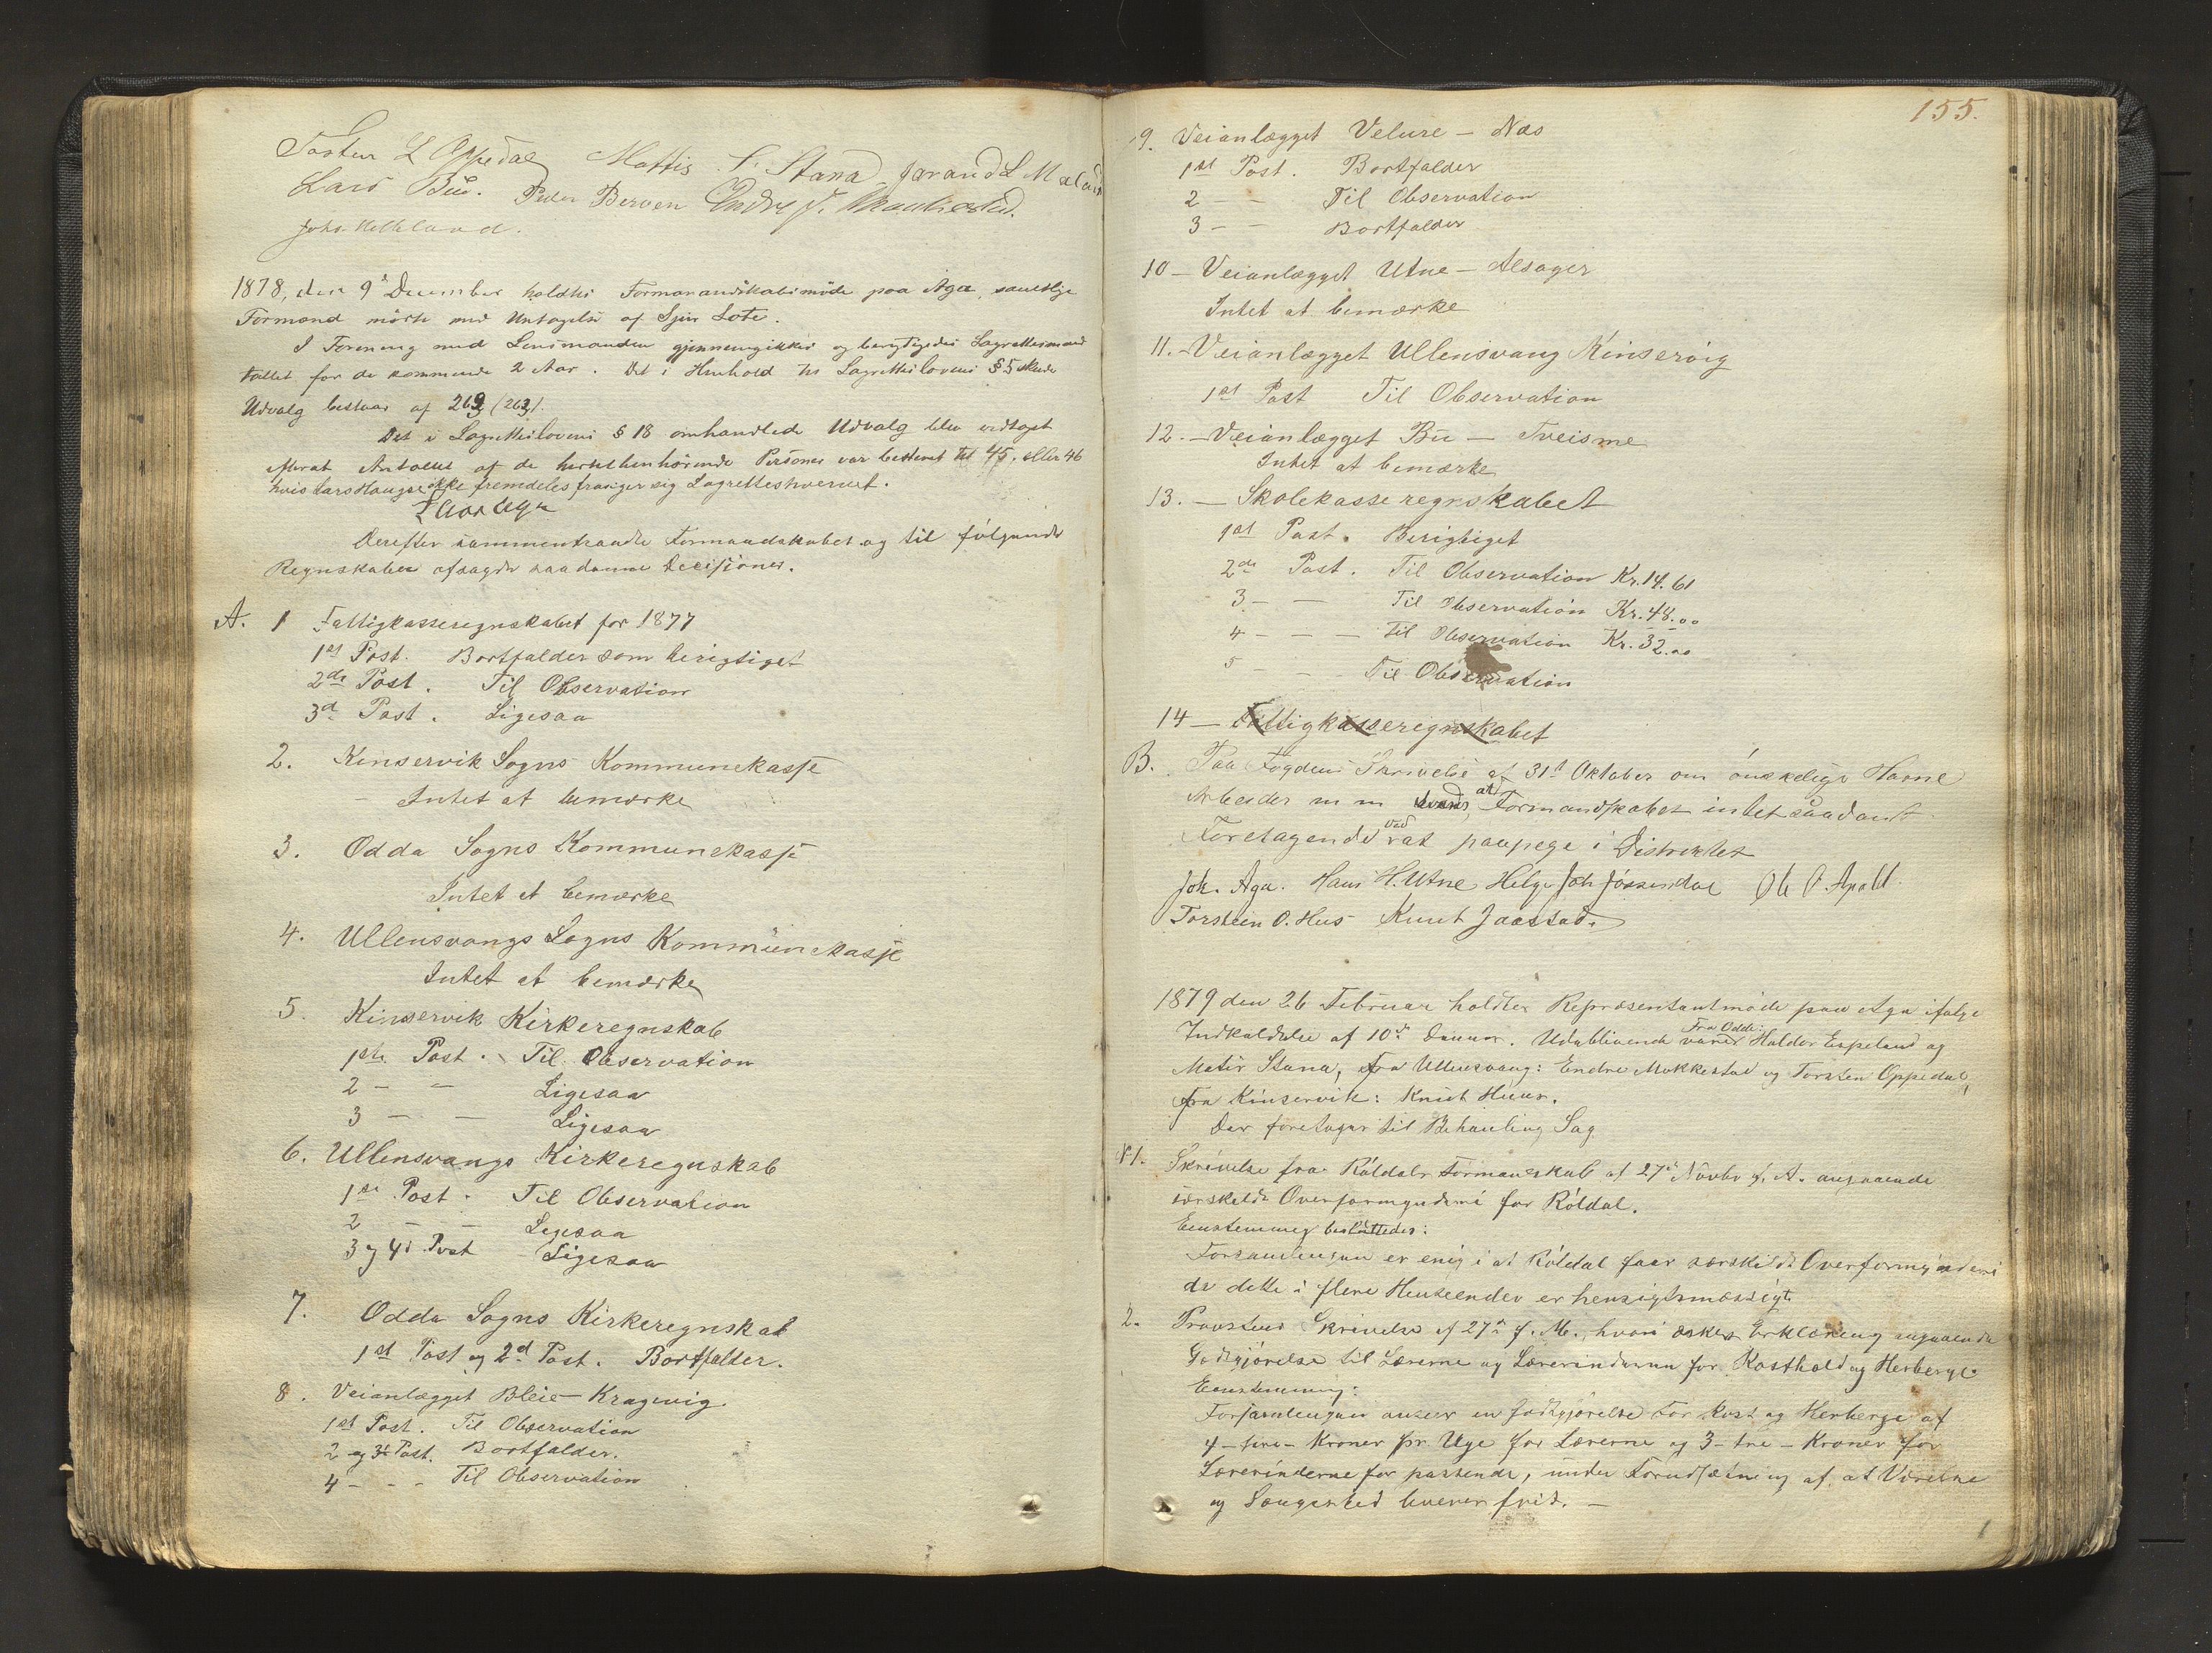 Torsten L Oppedal Mattis S. Stana Jørand L M
Lars Bu. Peder Berven Endre J.
Joh. Helleland.
1878, den 9de December holdtes Formandskabsmøde paa Aga, samtlige
Formænd mødte med Untagelse af Sjur Lote.
I Forening med Lensmanden gjennemgikkes og berigtigedes Lagrettesmand
tallet for de kommende 2 Aar. Det i Henhold til Lagretteslovens § 5 skede
Udvalg bestaar af 263 (263).
Det i Lagretteslovens § 18 omhandlede Udvalg blev vedtaget
efterat Antallet af de hertil henhørende Personer var bestemt til 45, eller 46
hvis Lars Haugse ikke fremdeles frasiger sig Lagretteshvervet.
Lars Aga
Derefter sammentraadte Formandskabet og til følgende
Regnskaber afsagde saadanne Decisioner.
A. 1 Fattigkasseregnskabet for 1877
1st Post. Bortfalder som berigtiget
2de Post. Til Observation
3d Post. Ligesaa
2. Kinservik Sogns Kommunekasse
- Intet at bemærke
3. Odda Sogns Kommunekasse
Intet at bemærke
4. Ullensvangs Sogns Kommunekasse
Intet at bemærke
5. Kinservik Kirkeregnskab
1ste Post. Til Observation
2 - - Ligesaa
3 - - Ligesaa
6. Ullensvangs Kirkeregnskab
1ste Post. Til Observation
2 - - Ligesaa
3 og 4d Post Ligesaa
7. Odda Sogns Kirkeregnskab
1st Post og 2d Post. Bortfalder.
8. Veianlægget Bleie - Kragevig.
1st Post. Til Observation
2 og 3d Post. Bortfalder.
4 - - - Til Observation
155.
9. Veianlægget Velure - Næs
1st Post. Bortfalder
2 - - Til Observation
3 - - Bortfalder
10 - Veianlægget Utne - Alsager
Intet at bemærke
11. - Veianlægget Ullensvang Kinservig
1st Post Til Observation
12. - Veianlægget Bu - Tveisme
Intet at bemærke
13. - Skolekasseregnskabet
1st Post. Berigtiget
2de Post. Til Observation Kr. 14.61
3 - - Til Observation Kr. 48.00
4 - - - Til Observation Kr. 32.00
5 - - - Til Observation
14 - Fattigkasseregnskabet
B. Paa Fogdens Skrivelse af 31te Oktober om ønskelige Havne
Arbeider m m svares, at Formandskabet intet saadant
Foretagende ved at paapege i Distriktet
Joh. Aga. Hans H. Utne Helge Joh Jøssendal Ole O. Apold
Torstein O. Hus Knut Jaastad.
1879 den 26 Februar holdtes Repræsentantmøde paa Aga ifølge
Indkaldelse af 10de Januar. Udeblivende vare Fra Odda: Haldor Espeland og
Matis Stana, fra Ullensvang: Endre Mokkestad og Torsten Oppedal,
fra Kinservik: Knut Huus.
Der foretoges til Behanling Sag
N 1. Skrivelse fra Røldals Formanskab af 27de Novbr f. A. angaaende
særskildt Overformynderi for Røldal.
Eenstemmig besluttedes:
Forsamlingen er enig i at Røldal faar særskildt Overformynderi
da dette i flere Henseender er hensigtsmæssigt.
2. Provstens Skrivelse af 27de f. M., hvori æskes Erklæring angaaende
Godtgjørelse til Lærerne og Lærerinderne for Kosthold og Herberge.
Eenstemmig:
Forsamlingen anseer en Godtgjørelse for Kost og Herberge af
4 - fire - Kroner pr. Uge for Lærerne og 3 - tre - Kroner for
Lærerinderne for passende, under Forudsætning af at Værelse
og Sengested leveres frit. -